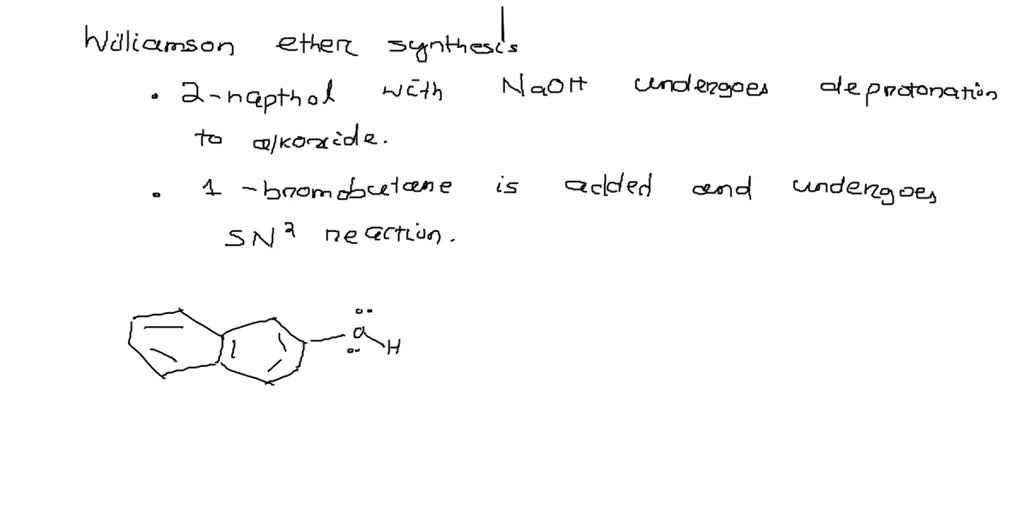 Williamson ether synthesis
• 2-napthol with NaOH undergoes deprotonation
to alkoxide.
• 1-bromobutane is added and undergoes
SN2 reaction.
O
H